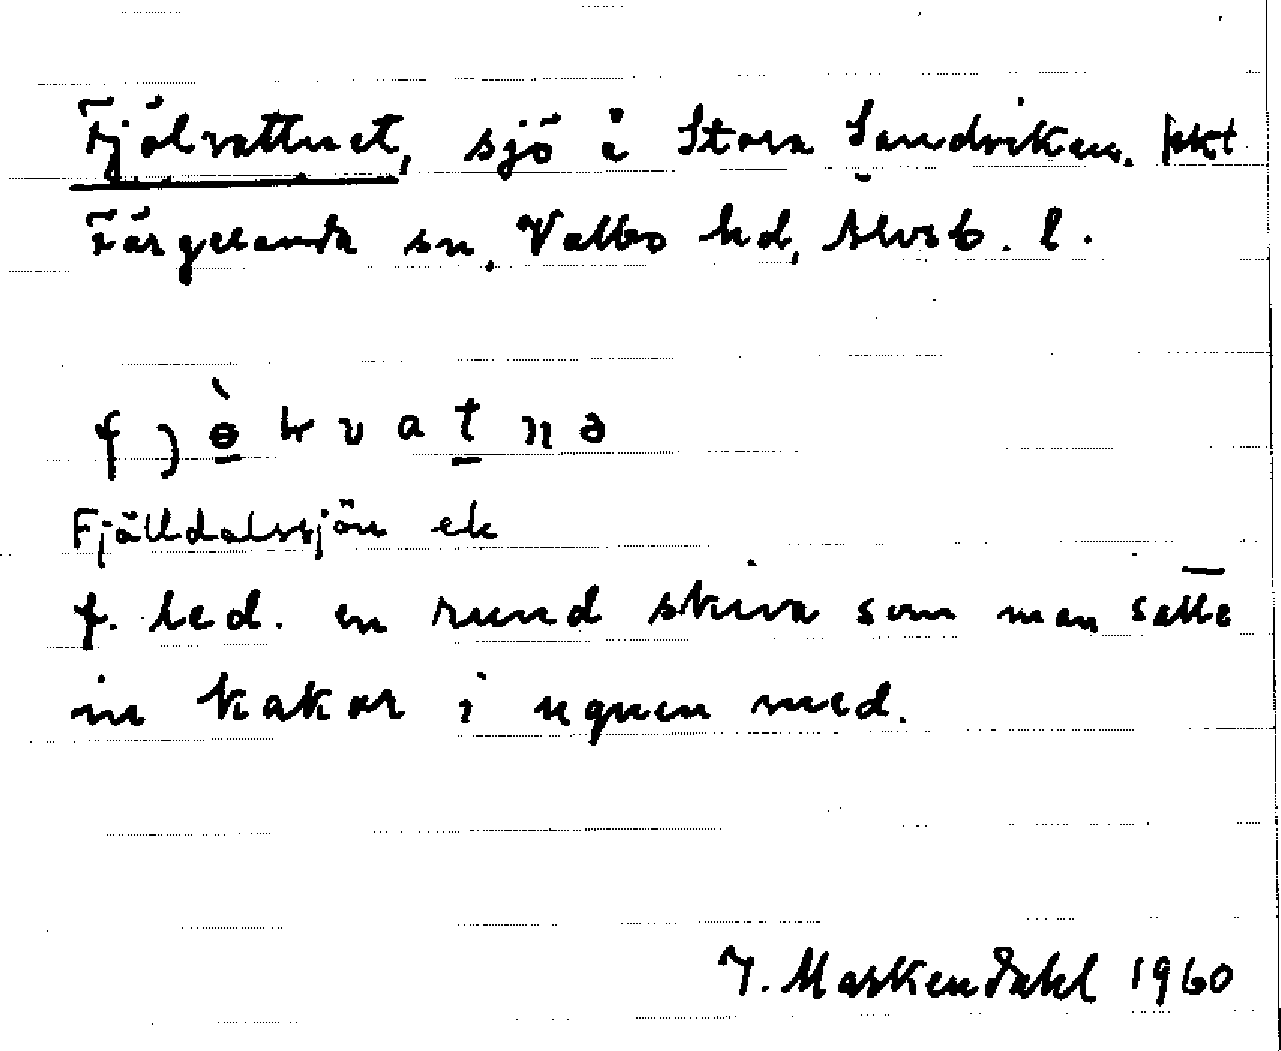 Fjölvattnet, sjö i Stora Sandviken.
Färgelanda sn, Valbo hd, Älvsb. l.
Fjälldalssjön ek
f. led. en rund skiva som man satte
in kakor i ugnen med.
J. Maskendahl 1960